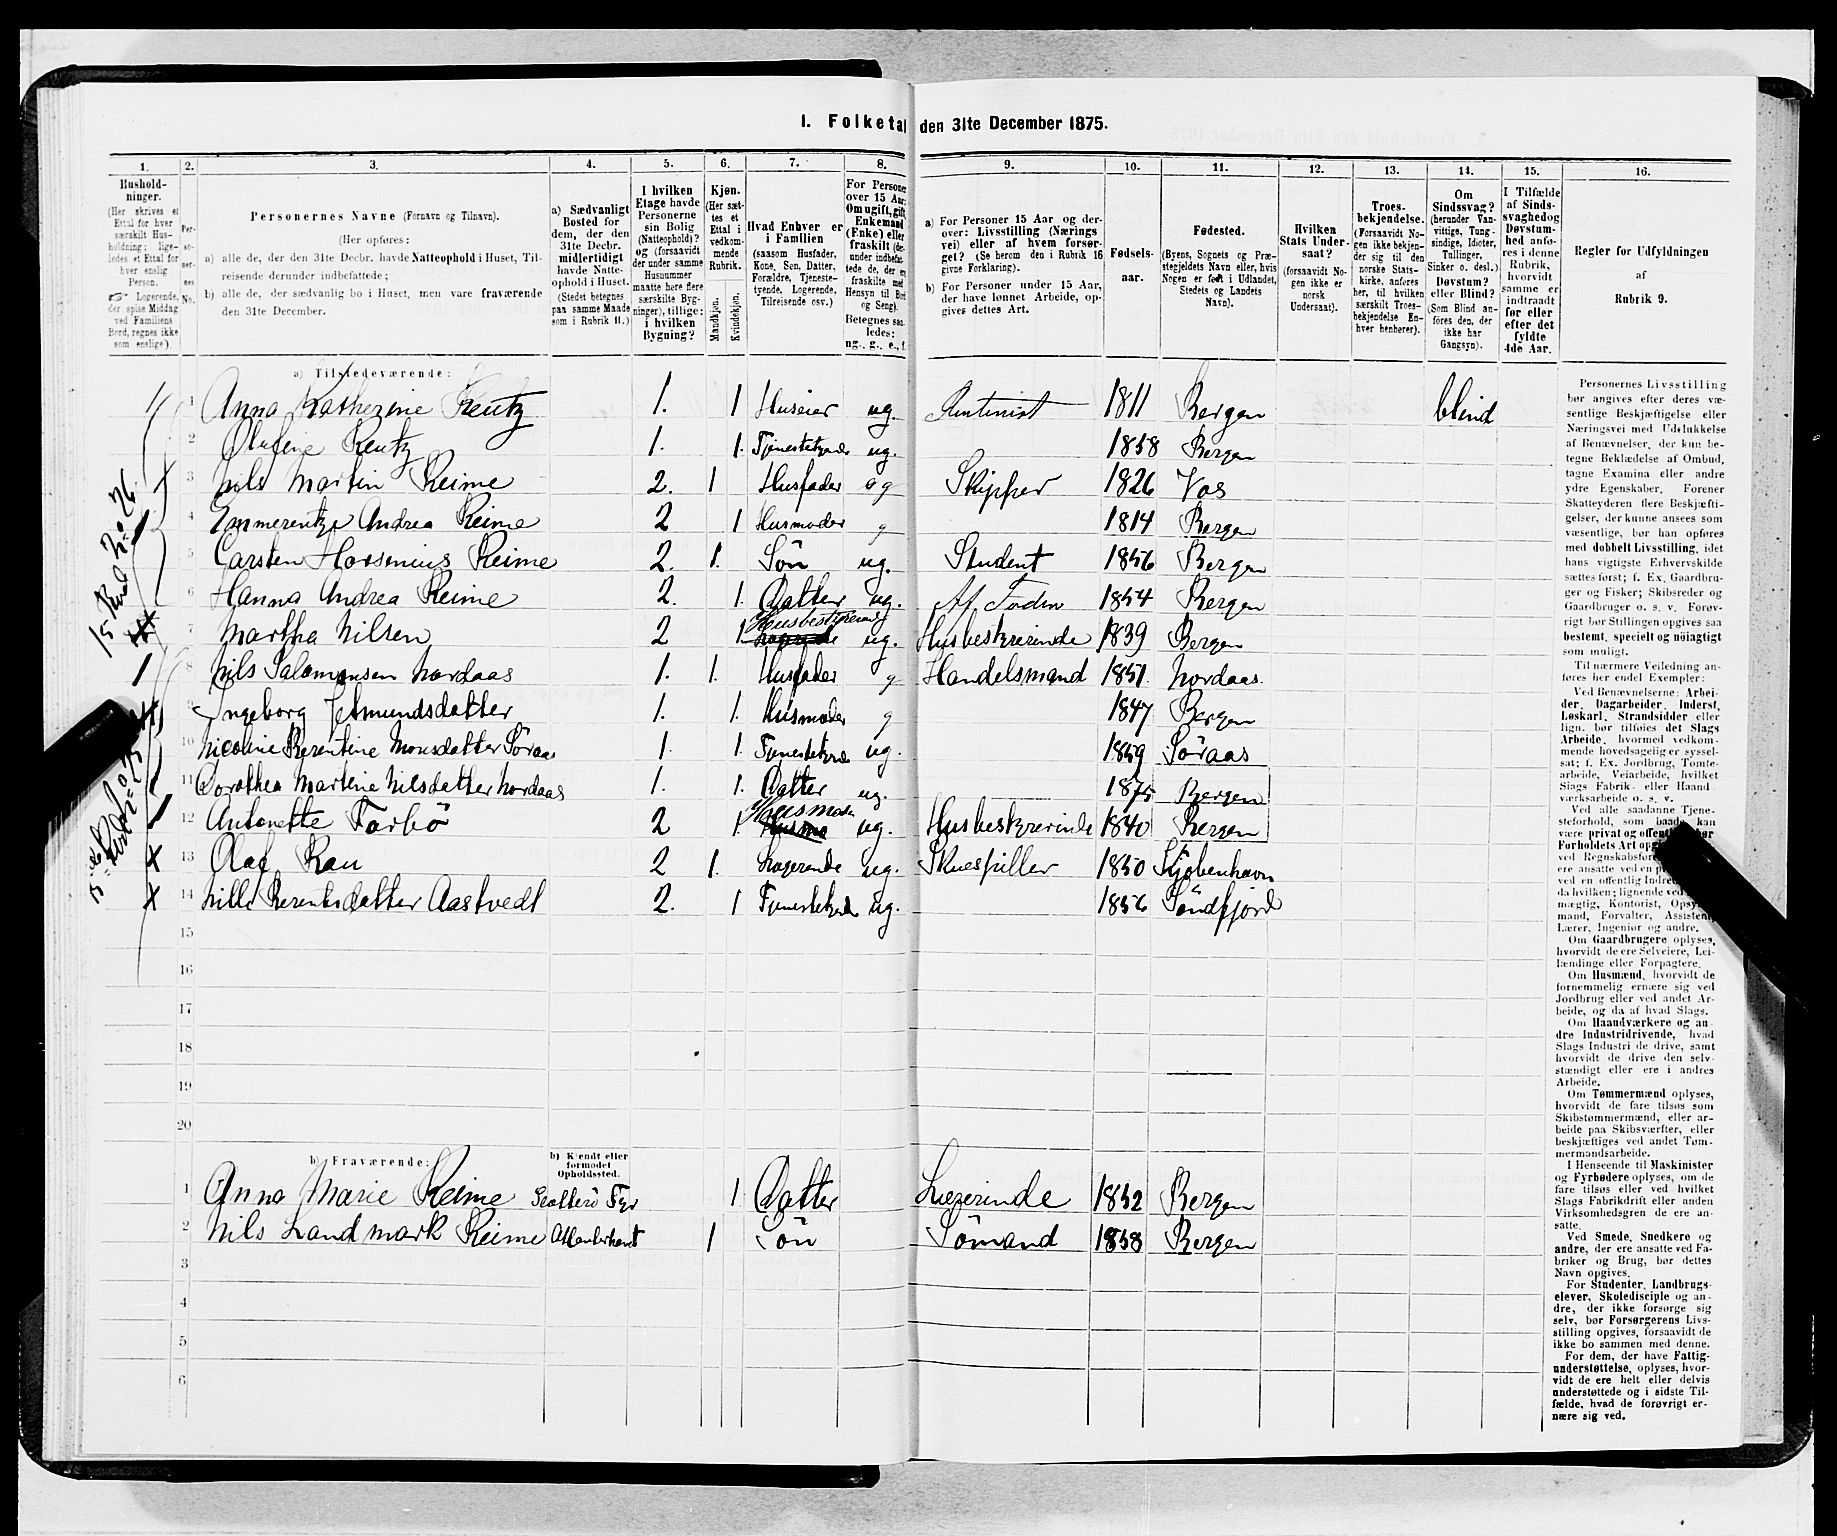 1. Folketal den 31te December 1875.
1. 2. 3. 4. 5. 6. 7. 8. 9. 10. 11. 12. 13. 14. 15. 16.
Hushold-
ninger.
(Her skrives et
Ettal for hver
særskilt Hus-
holdning; lige-
ledes et Ettal for
hver enslig
Person.
Logerende,
der spise Middag
ved Familiens
Bord, regnes ikke
som enslige).
Per-
so-
ner-
nes
No.
Personernes Navne (Fornavn og Tilnavn).
(Her opføres:
a) alle de, der den 31te Decbr. havde Natteophold i Huset, Til-
reisende derunder indbefattede;
b) alle de, der sædvanlig bo i Huset, men vare fraværende
den 31te December.
a) Sædvanligt
Bosted for
dem, der den
31te Decbr.
midlertidigt
havde Natte-
ophold i Huset.
(Stedet betegnes
paa samme Maade
som i Rubrik 11.)
I hvilken
Etage havde
Personerne
sin Bolig
(Natteophold)?
og (forsaavidt
der under samme
Husnummer
maatte høre flere
særskilte Byg-
ninger), tillige:
i hvilken
Bygning?
Kjøn.
(Her sæt-
tes et
Ettal i
vedkom-
mende
Rubrik.
Mandkjøn.
Kvindekjøn.
Hvad Enhver er
i Familien
(saasom Husfader,
Kone, Søn, Datter,
Forældre, Tjeneste-
tyende, Logerende,
Tilreisende osv.)
For Personer
over 15 Aar:
Om ugift, gift,
Enkemand
(Enke) eller
fraskilt (der-
under indbefat-
tede de, der ere
fraskilte med
Hensyn til Bord
og Seng).
Betegnes saa-
ledes:
ug., g., e., f.
a) For Personer 15 Aar og der-
over: Livsstilling (Nærings-
vei) eller af hvem forsør-
get? (Se herom den i Rubrik 16
givne Forklaring).
b) For Personer under 15 Aar,
der have lønnet Arbeide, op-
gives dettes Art.
Fødsels-
aar.
Fødested.
(Byens, Sognets og Præ-
stegjeldets Navn eller, hvis
Nogen er født i Udlandet,
Stedets og Landets
Navn).
Hvilken
Stats Under-
saat?
(forsaavidt No-
gen ikke er
norsk
Undersaat).
Troes-
bekjendelse.
(Forsaavidt No-
gen ikke bekjen-
der sig til den
norske Stats-
kirke, anføres
her, til hvilken
særskilt Troes-
bekjendelse En-
hver henhører).
Om
Sindssvag?
(herunder Van-
vittige, Tung-
sindige, Idioter,
Tullinger,
Sinker o. desl.)
Døvstum?
eller Blind?
(Som Blind an-
føres den, der
ikke har
Gangsyn).
I Tilfælde
af Sinds-
svaghed og
Døvstum-
hed anfø-
res i denne
Rubrik,
hvorvidt
samme er
indtraadt
før eller
efter det
fyldte
4de Aar.
Regler for Udfyldningen
af
Rubrik 9.
a) Tilstedeværende:
1 1 Anna Katherine Reutz 1. 1 Huseier ug. Rentinist 1811 Bergen blind
2 Olufine Reutz 1. 1. Tjenestetyende ug. 1858 Bergen
3 Nils Martin Reime 2. 1 Husfader g Skipper 1826 Vos
4 Emmerentze Andrea Reime 2 1 Husmoder g 1814 Bergen
5 Carsten Reime 2. 1. Søn ug. Student 1856 Bergen
6 Hanna Andrea Reime 2. 1. Datter ug. 1854 Bergen
7 Martha Nilsen 2 1 Husbestyrerinde ug. Husbestyrerinde 1839 Bergen
1 8 Nils Salomonsen Nordaas 1. 1. Husfader g Handelsmand 1851 Nordaas.
9 Ingeborg Jetmundsdatter 1. 1. Husmoder g 1847 Bergen
10 Nicoline Berentine Monsdatter Söraas 1. 1. Tjenestetyende ug. 1859 Söraas
11 Dorothea Martine Nilsdatter Nordaas 1. 1. Datter ug. 1875 Bergen
12 Antonette Farbö 2 1. Husmoder ug. Husbestyrerinde 1840 Bergen
13 Olaf Rau 2 1. Logerende ug. Skuespiller 1850 Kjøbenhavn
14 Nille Berentsdatter Aastvedt 2. 1 Tjenestetyende ug. 1856 Söndfjord
15
16
17
18
19
20
b) Fraværende:
b) Kjendt eller
formodet
Opholdssted.
1 Anna Marie Reime 1 Datter Lærerinde 1852 Bergen
2 Nils Landmark Reime Atlanterhavet 1 Søn Sömand 1858 Bergen
3
4
5
6
Personernes Livsstilling
bør angives efter deres væ-
sentlige Beskjæftigelse eller
Næringsvei med Udelukkelse
af Benævnelser, der kun be-
tegne Beklædelse af Ombud,
tagne Examina eller andre
ydre Egenskaber. Forener
Skatteyderen flere Beskjæfti-
gelser, der kunne ansees som
væsentlige, bør han opføres
med dobbelt Livsstilling, idet
hans vigtigste Erhvervskilde
sættes først; f. Ex. Gaardbru-
ger og Fisker; Skibsreder og
Gaardbruger o. s. v. Forøv-
rigt bør Stillingen opgives saa
bestemt, specielt og nöiagtigt
som muligt.
Til nærmere Veiledning an-
føres her endel Exempler:
Ved Benævnelserne: Arbei-
der, Dagarbeider, Inderst,
Løskarl, Strandsidder eller
lign. bør tilføies det Slags
Arbeide, hvormed vedkom-
mende hovedsagelig er syssel-
sat; f. Ex. Jordbrug, Tomte-
arbeide, Veiarbeide, hvilket
Slags Fabrik- eller Haand-
værksarbeide o. s. v.
Ved alle saadanne Tjene-
steforhold, som baade kan
være privat og offentligt, bør
Forholdets Art op
ved Regnskabsfør
ere ansatte ved en p
ved en offentlig Indre
da hvilken; lignende ved
mægtig, Kontorist, Opsy
mand, Forvalter, Assistent,
Lærer, Ingeniør og andre.
Om Gaardbrugere oplyses,
hvorvidt de ere Selveiere, Lei-
lændinge eller Forpagtere.
Om Husmænd, hvorvidt de
fornemmelig ernære sig ved
Jordbrug eller ved andet Ar-
beide, og da af hvad Slags.
Om Haandværkere og an-
dre Industridrivende, hvad
Slags Industri de drive, samt
hvorvidt de drive den selv-
stændigt eller ere i andres
Arbeide.
Om Tømmermænd oplyses,
hvorvidt de fare tilsøs som
Skibstømmermænd, eller ar-
beide paa Skibsværfter, eller
beskjæftiges ved andet Tøm-
mermandsarbeide.
I Henseende til Maskinister
og Fyrbødere oplyses, om de
fare tilsøs eller ved hvilket
Slags Fabrikdrift eller anden
Virksomhedsgren de ere an-
satte.
Ved Smede, Snedkere og
andre, der ere ansatte ved Fa-
briker og Brug, bør dettes
Navn opgives.
For Studenter, Landbrugs-
elever, Skoledisciple og an-
dre, der ikke forsørge sig
selv, bør Forsørgerens Livs-
stilling opgives, forsaavidt de
ikke bo sammen med denne.
For dem, der have Fattig-
understøttelse, oplyses, hvor-
vidt de ere helt eller delvis
understøttede og i sidste Til-
fælde, hvad de forøvrigt er-
nære sig ved.